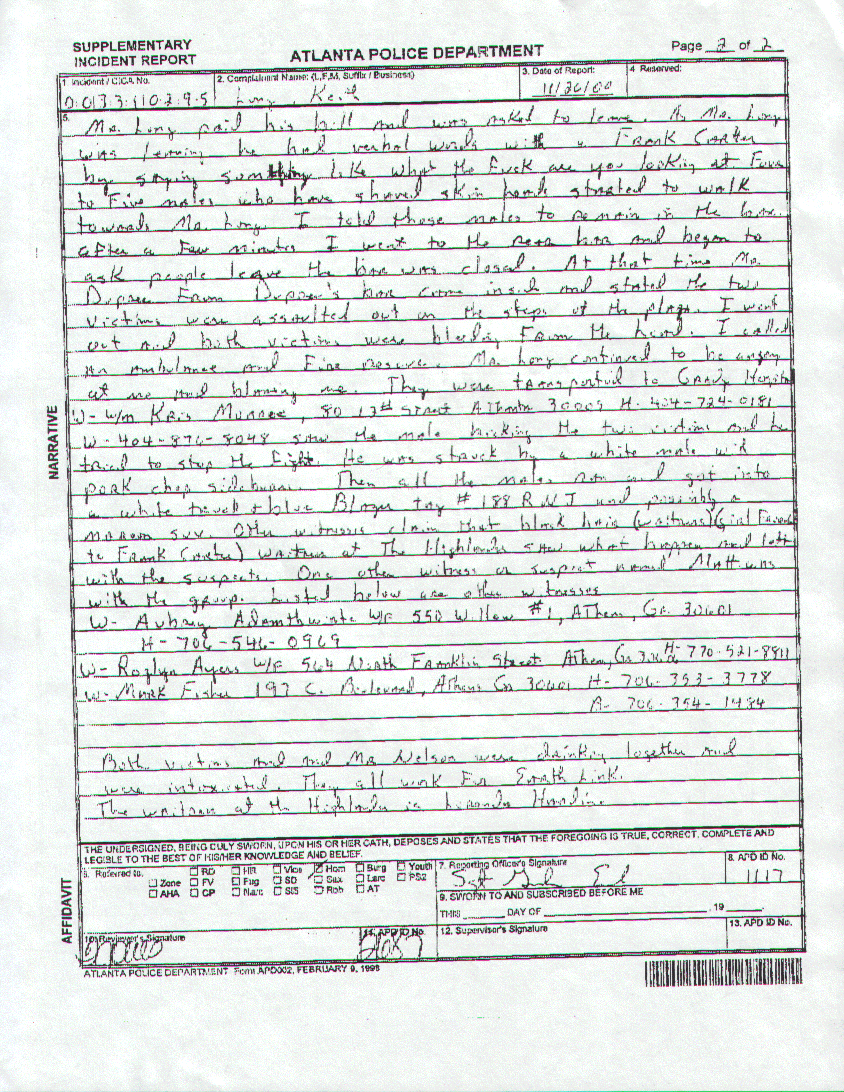 SUPPLEMENTARY
INCIDENT REPORT
ATLANTA POLICE DEPARTMENT
Page 2 of 2
1. Incident / C.I.C.A. No.
2. Complainant Name: (L,F,M, Suffix / Business)
3. Date of Report:
4 Reserved:
Long, Keith
11/26/00
5.
Mr. Long paid his bill and was asked to leave. As Mr. Long
was leaving he had verbal words with a Frank
by saying something like what the fuck are you looking at. Four
to Five males who have shaved skin heads started to walk
towards Mr. Long. I told those males to remain in the bar.
after a few minutes I went to the rear bar and began to
ask people leave the bar was closed. At that time Mr.
Dupree From Dupree's bar came inside and stated the two
victims were assaulted out on the steps of the plaza. I went
out and both victims were bleeding From the head. I called
an Ambulance and Fire rescue. Mr. Long continued to be angry
at me and blaming me. They were transported to Grady Hospital
W- W/M Kris Monroe, 80 13th Street Atlanta 30309 H- 404-724-0181
W- 404-876-8048 saw the male kicking the two victims and he
tried to stop the fight. He was struck by a white male with
pork chop sideburns. Then all the males ran and got into
a white truck + blue Blazer tag # 188 RNJ and possibly a
maroon suv. Other witnesses claim that black hair (waitress) (girl Friend
to Frank) waitress at The Highlander saw what happen and left
with the suspects. One other witness or suspect named Matt was
with the group. Listed below are other witnesses
W- Aubrey W/F 550 Willow #1, Athens, Ga. 30601
H- 706-546-0969
W- Roslyn Ayers W/F 564 North Franklin Street Athens, Ga H- 770-521-8811
W- Mark Fisher 197 C. Boulevard, Athens Ga 30601 H- 706-353-3778
B- 706-354-1484
Both victims and and Mr Nelson were drinking together and
were intoxicated. They all work For Earth Link.
The waitress at the Highlander is
NARRATIVE
THE UNDERSIGNED, BEING DULY SWORN, UPON HIS OR HER OATH, DEPOSES AND STATES THAT THE FOREGOING IS TRUE, CORRECT, COMPLETE AND
LEGIBLE TO THE BEST OF HIS/HER KNOWLEDGE AND BELIEF.
AFFIDAVIT
6. Referred to:
RD HR Vice Hom Burg Youth
Zone FV Fug SO Sex Larc PS2
AHA CP Narc SIS Rob AT
7. Reporting Officer's Signature
Sgt
8. APD ID No.
1117
9. SWORN TO AND SUBSCRIBED BEFORE ME
THIS ______ DAY OF ______ 19 ____
10. Reviewer's Signature
11. APD ID No.
12. Supervisor's Signature
13. APD ID No.
ATLANTA POLICE DEPARTMENT Form APD002, FEBRUARY 9, 1998